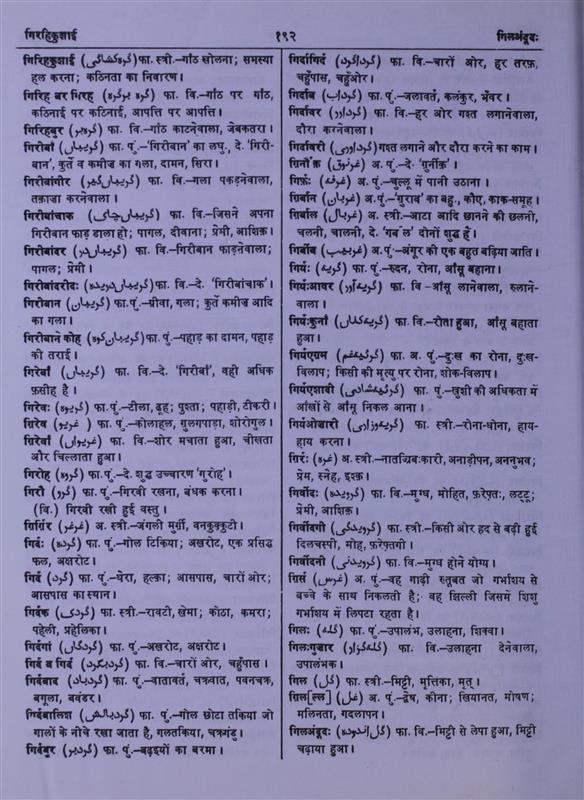 गिरहिकुशाई
१९२
गिलअंदूदः
गिरिहकुशाई (گره کشائی) फा. स्त्री.–गाँठ खोलना; समस्या
हल करना; कठिनता का निवारण।
गिरिह बर गिरह (گره برگره) फा. वि.–गाँठ पर गाँठ,
कठिनाई पर कठिनाई, आपत्ति पर आपत्ति।
गिरिहबुर (گره بر) फा. वि.–गाँठ काटनेवाला, जेबकतरा।
गिरीबाँ (گریباں) फा. पुं.–'गिरीबान' का लघु., दे. 'गिरी-
बान', कुर्ते व कमीज का गला, दामन, सिरा।
गिरीबांगीर (گریباں گیر) फा. वि.–गला पकड़नेवाला,
तक़ाज़ा करनेवाला।
गिरीबांचाक (گریباں چاک) फा. वि.–जिसने अपना
गिरीबान फाड़ डाला हो; पागल, दीवाना; प्रेमी, आशिक़।
गिरीबांदर (گریباں در) फा. वि.–गिरीबान फाड़नेवाला;
पागल; प्रेमी।
गिरीबांदरीदः (گریباں دریده) फा. वि.–दे. 'गिरीबांचाक'।
गिरीबान (گریبان) फा. पुं.–ग्रीवा, गला; कुर्ते कमीज आदि
का गला।
गिरीबाने कोह (گریبان کوه) फा. पुं.–पहाड़ का दामन, पहाड़
की तराई।
गिरेबाँ (گریباں) फा. वि.–दे. 'गिरीबाँ', वही अधिक
फ़सीह है।
गिरेवः (گریوه) फा. पुं.–टीला, ढूह; पुश्ता; पहाड़ी, टीकरी।
गिरेव (غریو) फा. पुं.–कोलाहल, गुलगपाड़ा, शोरोगुल।
गिरेवाँ (غریواں) फा. वि.–शोर मचाता हुआ, चीखता
और चिल्लाता हुआ।
गिरोह (گروه) फा. पुं.–दे. शुद्ध उच्चारण 'गुरोह'।
गिरौ (گرو) फा. पुं.–गिरवी रखना, बंधक करना।
(वि.) गिरवी रखी हुई वस्तु।
ग़िर्ग़िर (غرغر) अ. स्त्री.–जंगली मुर्ग़ी, वनकुक्कुटी।
गिर्दः (گرده) फा. पुं.–गोल टिकिया; अखरोट, एक प्रसिद्ध
फल, अक्षरोट।
गिर्द (گرد) फा. पुं.–घेरा, हल्क़ा; आसपास, चारों ओर;
आसपास का स्थान।
गिर्दक (گردک) फा. स्त्री.–रावटी, खेमा; कोठा, कमरा;
पहेली, प्रहेलिका।
गिर्दगां (گردگاں) फा. पुं.–अखरोट, अक्षरोट।
गिर्द व गिर्द (گردبگرد) फा. वि.–चारों ओर, चहुँपास।
गिर्दबाद (گردباد) फा. पुं.–वातावर्त, चक्रवात, पवनचक्र,
बगूला, बवंडर।
गिर्दबालिश (گردبالش) फा. पुं.–गोल छोटा तकिया जो
गालों के नीचे रखा जाता है, गलतकिया, चत्रगंडु।
गिर्दबुर (گردبر) फा. पुं.–बढ़इयों का बरमा।
गिर्दागिर्द (گرداگرد) फा. वि.–चारों ओर, हर तरफ़,
चहुँपास, चहुँओर।
गिर्दाब (گرداب) फा. पुं.–जलावर्त, कलंकुर, भँवर।
गिर्दावर (گرداور) फा. वि.–हर ओर गश्त लगानेवाला,
दौरा करनेवाला।
गिर्दावरी (گرداوری) गश्त लगाने और दौरा करने का काम।
ग़िर्नौक़ (غرنوق) अ. पुं.–दे 'ग़ुर्नीक़'।
ग़िर्फ़ः (غرفه) अ. पुं.–चुल्लू में पानी उठाना।
ग़िर्बान (غربان) अ. पुं.–'ग़ुराब' का बहु., कौए, काक-समूह।
ग़िर्बाल (غربال) अ. स्त्री.–आटा आदि छानने की छलनी,
चलनी, चालनी, दे. 'ग़र्बाल' दोनों शुद्ध हैं।
ग़िर्बीब (غربیب) अ. पुं.–अंगूर की एक बहुत बढ़िया जाति।
गिर्यः (گریه) फा. पुं.–रुदन, रोना, आँसू बहाना।
गिर्यःआवर (گریه آور) फा. वि –आँसू लानेवाला, रुलाने-
वाला।
गिर्यःकुनाँ (گریه کناں) फा. वि.–रोता हुआ, आँसू बहाता
हुआ।
गिर्यएग़म (گریۂ غم) फा. अ. पुं.–दुःख का रोना, दुःख-
विलाप; किसी की मृत्यु पर रोना, शोक-विलाप।
गिर्यएशादी (گریۂ شادی) फा. पुं.–खुशी की अधिकता में
आंखों से आँसू निकल आना।
गिर्यओज़ारी (گریه وزاری) फा. स्त्री.–रोना-धोना, हाय-
हाय करना।
ग़िर्रः (غره) अ. स्त्री.–नातज्रिबःकारी, अनाड़ीपन, अननुभव;
प्रेम, स्नेह, इश्क़।
गिर्वीदः (گرویده) फा. वि.–मुग्ध, मोहित, फ़रेफ़्तः, लट्टू;
प्रेमी, आशिक़।
गिर्वीदगी (گرویدگی) फा. स्त्री.–किसी ओर हद से बढ़ी हुई
दिलचस्पी, मोह, फ़रेफ़्तगी।
गिर्वीदनी (گرویدنی) फा. वि.–मुग्ध होने योग्य।
ग़िर्स (غرس) अ. पुं.–वह गाढ़ी रतूबत जो गर्भाशय से
बच्चे के साथ निकलती है; वह झिल्ली जिसमें शिशु
गर्भाशय में लिपटा रहता है।
गिलः (گله) फा. पुं.–उपालंभ, उलाहना, शिक्वा।
गिलःगुज़ार (گله گزار) फा. वि.–उलाहना देनेवाला,
उपालंभक।
गिल (گل) फा. स्त्री.–मिट्टी, मृत्तिका, मृत्।
ग़िल[ल्ल] (غل) अ. पुं.–द्वेष, कीना; खियानत, मोषण;
मलिनता, गदलापन।
गिलअंदूदः (گل اندوده) फा. वि.–मिट्टी से लेपा हुआ, मिट्टी
चढ़ाया हुआ।